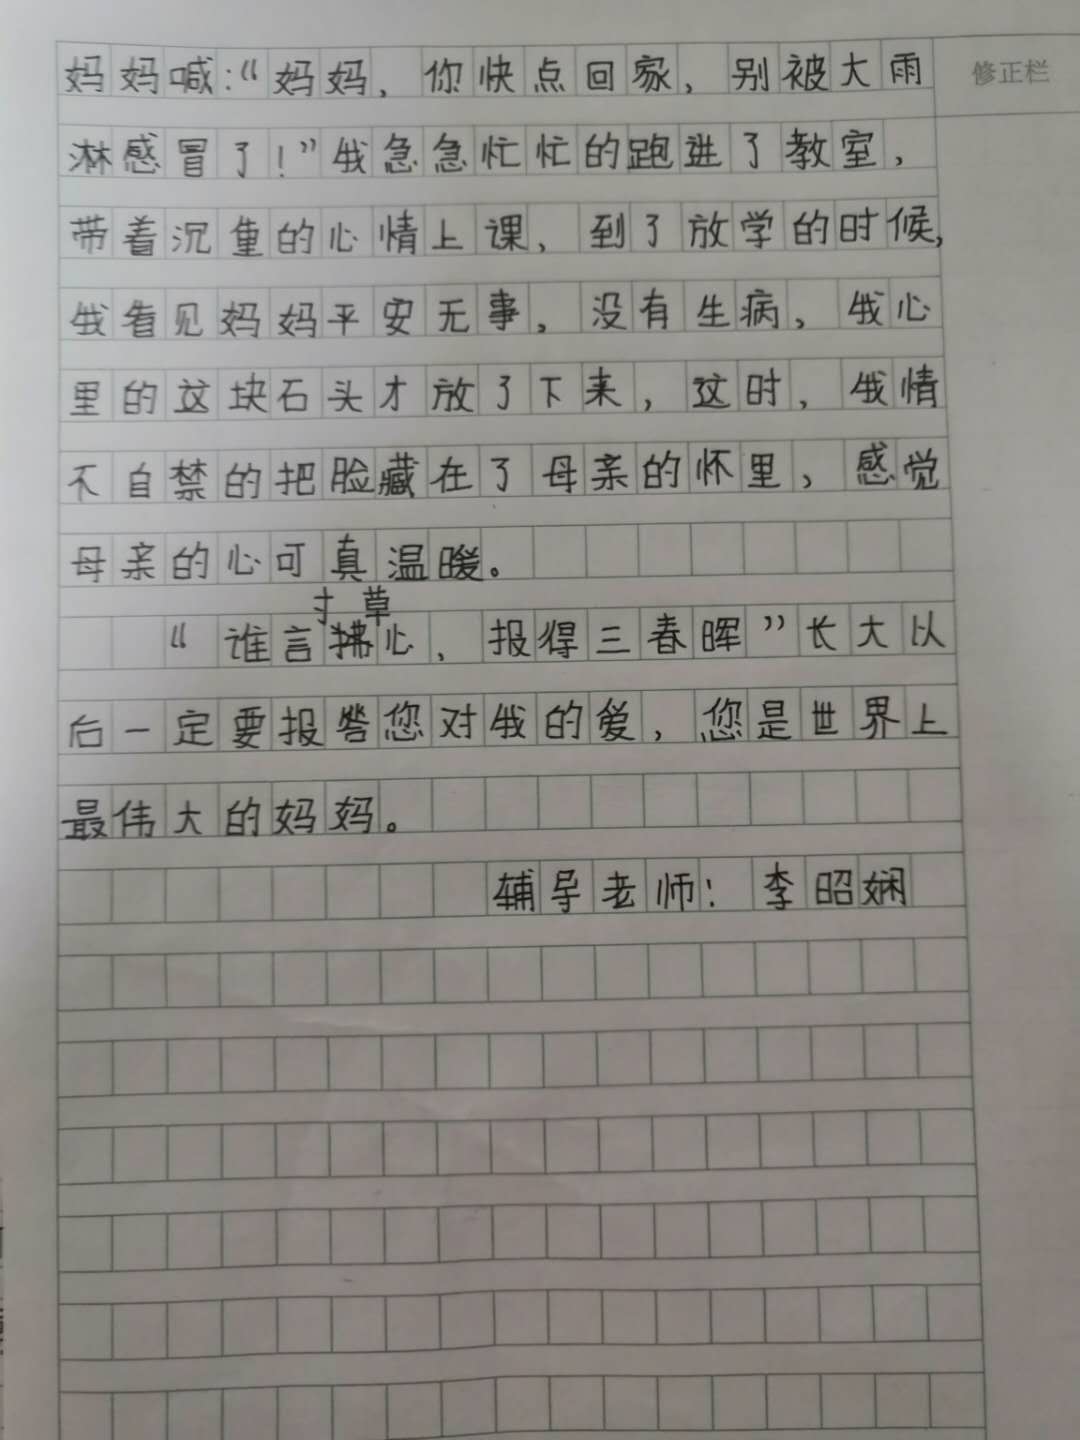 妈妈喊：“妈妈，你快点回家，别被大雨
修正栏
淋感冒了！”我急急忙忙的跑进了教室，
带着沉重的心情上课，到了放学的时候，
我看见妈妈平安无事，没有生病，我心
里的这块石头才放了下来，这时，我情
不自禁的把脸藏在了母亲的怀里，感觉
母亲的心可真温暖。
“谁言寸草心，报得三春晖”长大以
后一定要报答您对我的爱，您是世界上
最伟大的妈妈。
辅导老师：李昭娴